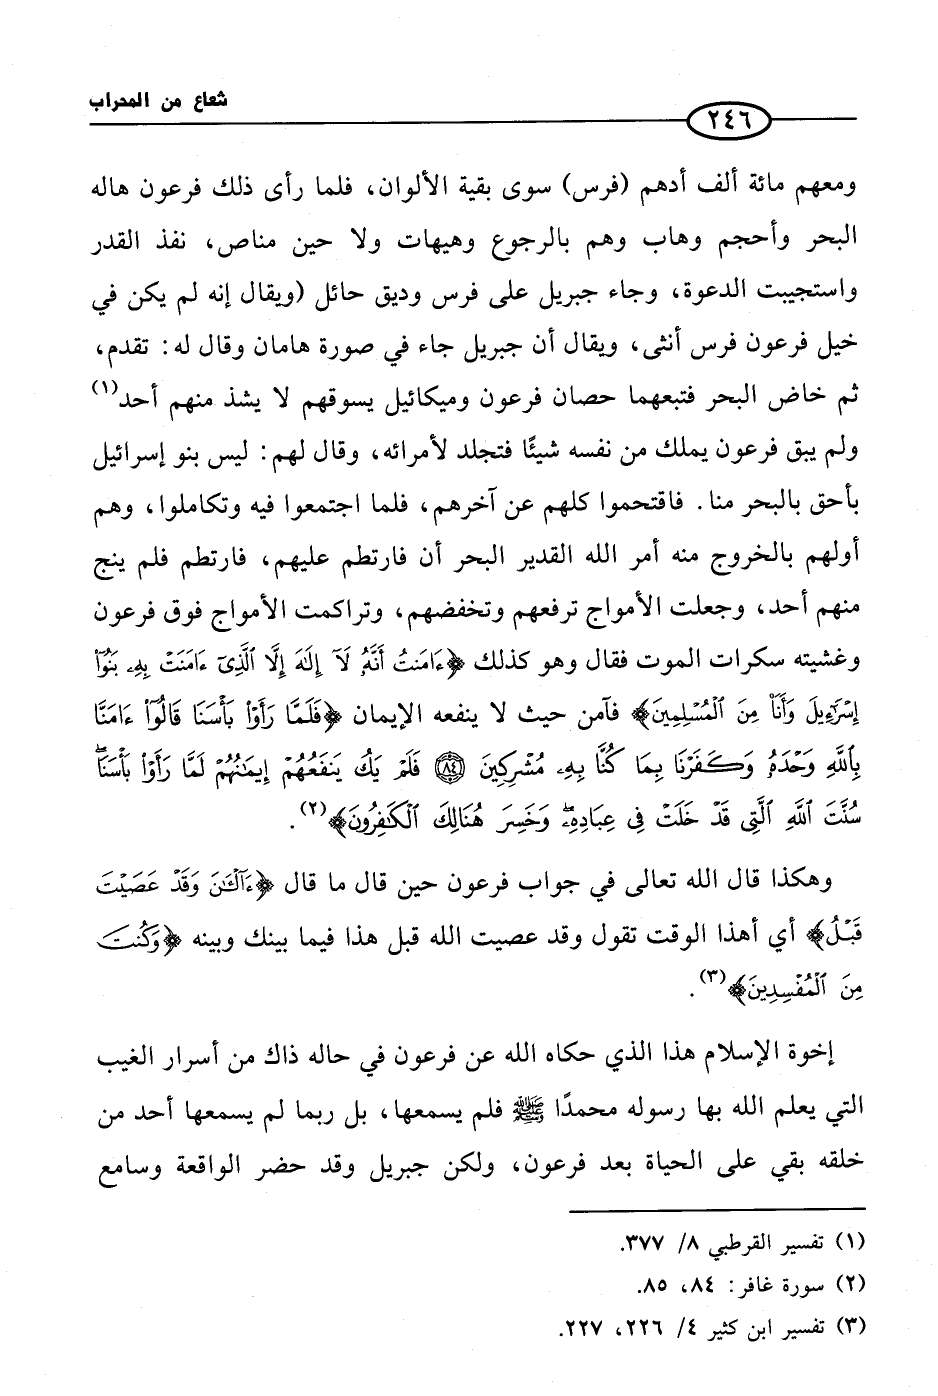 شعاع من المحراب
٢٤٦
ومعهم مائة ألف أدهم (فرس) سوى بقية الألوان، فلما رأى ذلك فرعون هاله
البحر وأحجم وهاب وهم بالرجوع وهيهات ولا حين مناص، نفذ القدر
واستجيبت الدعوة، وجاء جبريل على فرس وديق حائل (ويقال إنه لم يكن في
خيل فرعون فرس أنثى، ويقال أن جبريل جاء في صورة هامان وقال له: تقدم،
ثم خاض البحر فتبعهما حصان فرعون وميكائيل يسوقهم لا يشذ منهم أحد(١)
ولم يبق فرعون يملك من نفسه شيئًا فتجلد لأمرائه، وقال لهم: ليس بنو إسرائيل
بأحق بالبحر منا. فاقتحموا كلهم عن آخرهم، فلما اجتمعوا فيه وتكاملوا، وهم
أولهم بالخروج منه أمر الله القدير البحر أن فارتطم عليهم، فارتطم فلم ينج
منهم أحد، وجعلت الأمواج ترفعهم وتخفضهم، وتراكمت الأمواج فوق فرعون
وغشيته سكرات الموت فقال وهو كذلك ﴿ءَامَنتُ أَنَّهُۥ لَآ إِلَٰهَ إِلَّا ٱلَّذِىٓ ءَامَنَتْ بِهِۦ بَنُوٓا۟
إِسْرَٰٓءِيلَ وَأَنَا۠ مِنَ ٱلْمُسْلِمِينَ﴾ فآمن حيث لا ينفعه الإيمان ﴿فَلَمَّا رَأَوْا۟ بَأْسَنَا قَالُوٓا۟ ءَامَنَّا
بِٱللَّهِ وَحْدَهُۥ وَكَفَرْنَا بِمَا كُنَّا بِهِۦ مُشْرِكِينَ ٨٤ فَلَمْ يَكُ يَنفَعُهُمْ إِيمَٰنُهُمْ لَمَّا رَأَوْا۟ بَأْسَنَا ۖ
سُنَّتَ ٱللَّهِ ٱلَّتِى قَدْ خَلَتْ فِى عِبَادِهِۦ ۖ وَخَسِرَ هُنَالِكَ ٱلْكَٰفِرُونَ﴾(٢).
وهكذا قال الله تعالى في جواب فرعون حين قال ما قال ﴿ءَآلْـَٰٔنَ وَقَدْ عَصَيْتَ
قَبْلُ﴾ أي أهذا الوقت تقول وقد عصيت الله قبل هذا فيما بينك وبينه ﴿وَكُنتَ
مِنَ ٱلْمُفْسِدِينَ﴾(٣).
إخوة الإسلام هذا الذي حكاه الله عن فرعون في حاله ذاك من أسرار الغيب
التي يعلم الله بها رسوله محمدًا ﷺ فلم يسمعها، بل ربما لم يسمعها أحد من
خلقه بقي على الحياة بعد فرعون، ولكن جبريل وقد حضر الواقعة وسامع
(١) تفسير القرطبي ٨/ ٣٧٧.
(٢) سورة غافر: ٨٤، ٨٥.
(٣) تفسير ابن كثير ٤/ ٢٢٦، ٢٢٧.